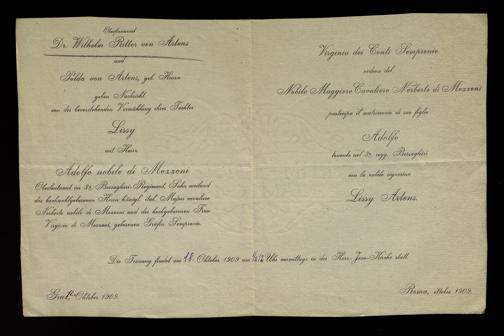 Oberleutnant
Dr. Wilhelm Ritter von Artens
und
von Artens, geb.
geben Nachricht
von der bevorstehenden Vermählung ihrer Tochter
Lissy
mit Herrn
Adolfo nobile di Mozzoni
Oberleutnant im Bersaglieri-Regiment, Sohn weiland
des hochwohlgeborenen Herrn königl. ital. Major cavaliere
Norberto nobile di Mozzoni und der hochgeborenen Frau
Virginia di Mozzoni, geborenen Gräfin Sempronio.
Virginia dei Conti Sempronio
vedova del
Nobile Maggiore Cavaliere Norberto di Mozzoni
partecipa il matrimonio di suo figlio
Adolfo
tenente nel regg. Bersaglieri
con la nobile signorina
Lissy Artens.
Die Trauung findet am 18. Oktober 1909 um Uhr vormittags in der Herz-Jesu-Kirche statt.
Graz, Oktober 1909.
Roma, ottobre 1909.